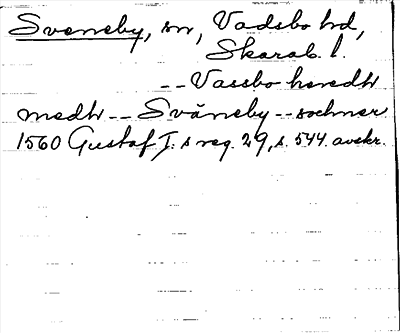 Sveneby, sn, Vadsbo hd,
Skarab. l.
-- Vassbo heredh
medh -- Sväneby -- sochner
1560 Gustaf I:s reg. 29, s. 544. avskr.